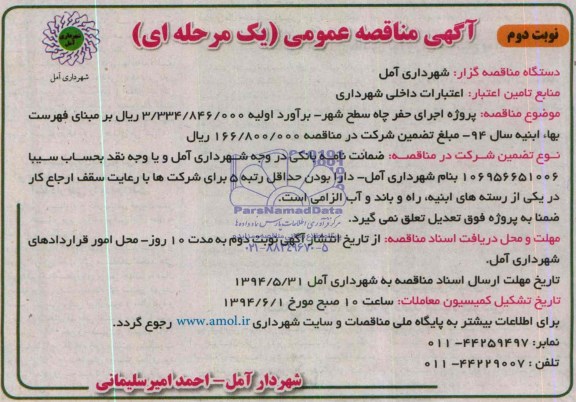 نوبت دوم
آگهی مناقصه عمومی (یک مرحله ای)
شهرداری آمل
دستگاه مناقصه گزار: شهرداری آمل
منابع تامین اعتبار: اعتبارات داخلی شهرداری
موضوع مناقصه: پروژه اجرای حفر چاه سطح شهر- برآورد اولیه ۳/۳۳۴/۸۴۶/۰۰۰ ریال بر مبنای فهرست
بها، ابنیه سال ۹۴- مبلغ تضمین شرکت در مناقصه ۱۶۶/۸۰۰/۰۰۰ ریال
نوع تضمین شرکت در مناقصه: ضمانت نامه بانکی در وجه شهرداری آمل و یا وجه نقد بحساب سیبا
۱۰۶۹۵۶۶۵۱۰۰۶ بنام شهرداری آمل- دارا بودن حداقل رتبه ۵ برای شرکت ها با رعایت سقف ارجاع کار
در یکی از رسته های ابنیه، راه و باند و آب الزامی است.
ضمنا به پروژه فوق تعدیل تعلق نمی گیرد.
مهلت و محل دریافت اسناد مناقصه: از تاریخ انتشار آگهی نوبت دوم به مدت ۱۰ روز- محل امور قراردادهای
شهرداری آمل.
تاریخ مهلت ارسال اسناد مناقصه به شهرداری آمل ۱۳۹۴/۵/۳۱
تاریخ تشکیل کمیسیون معاملات: ساعت ۱۰ صبح مورخ ۱۳۹۴/۶/۱
برای اطلاعات بیشتر به پایگاه ملی مناقصات و سایت شهرداری www.amol.ir رجوع گردد.
نمابر: ۴۴۲۵۹۴۹۷- ۰۱۱
تلفن : ۴۴۲۲۹۰۰۷- ۰۱۱
شهردار آمل- احمد امیرسلیمانی
ParsNamadData
۰۲۱-۸۸۳۴۹۶۷۰-۵